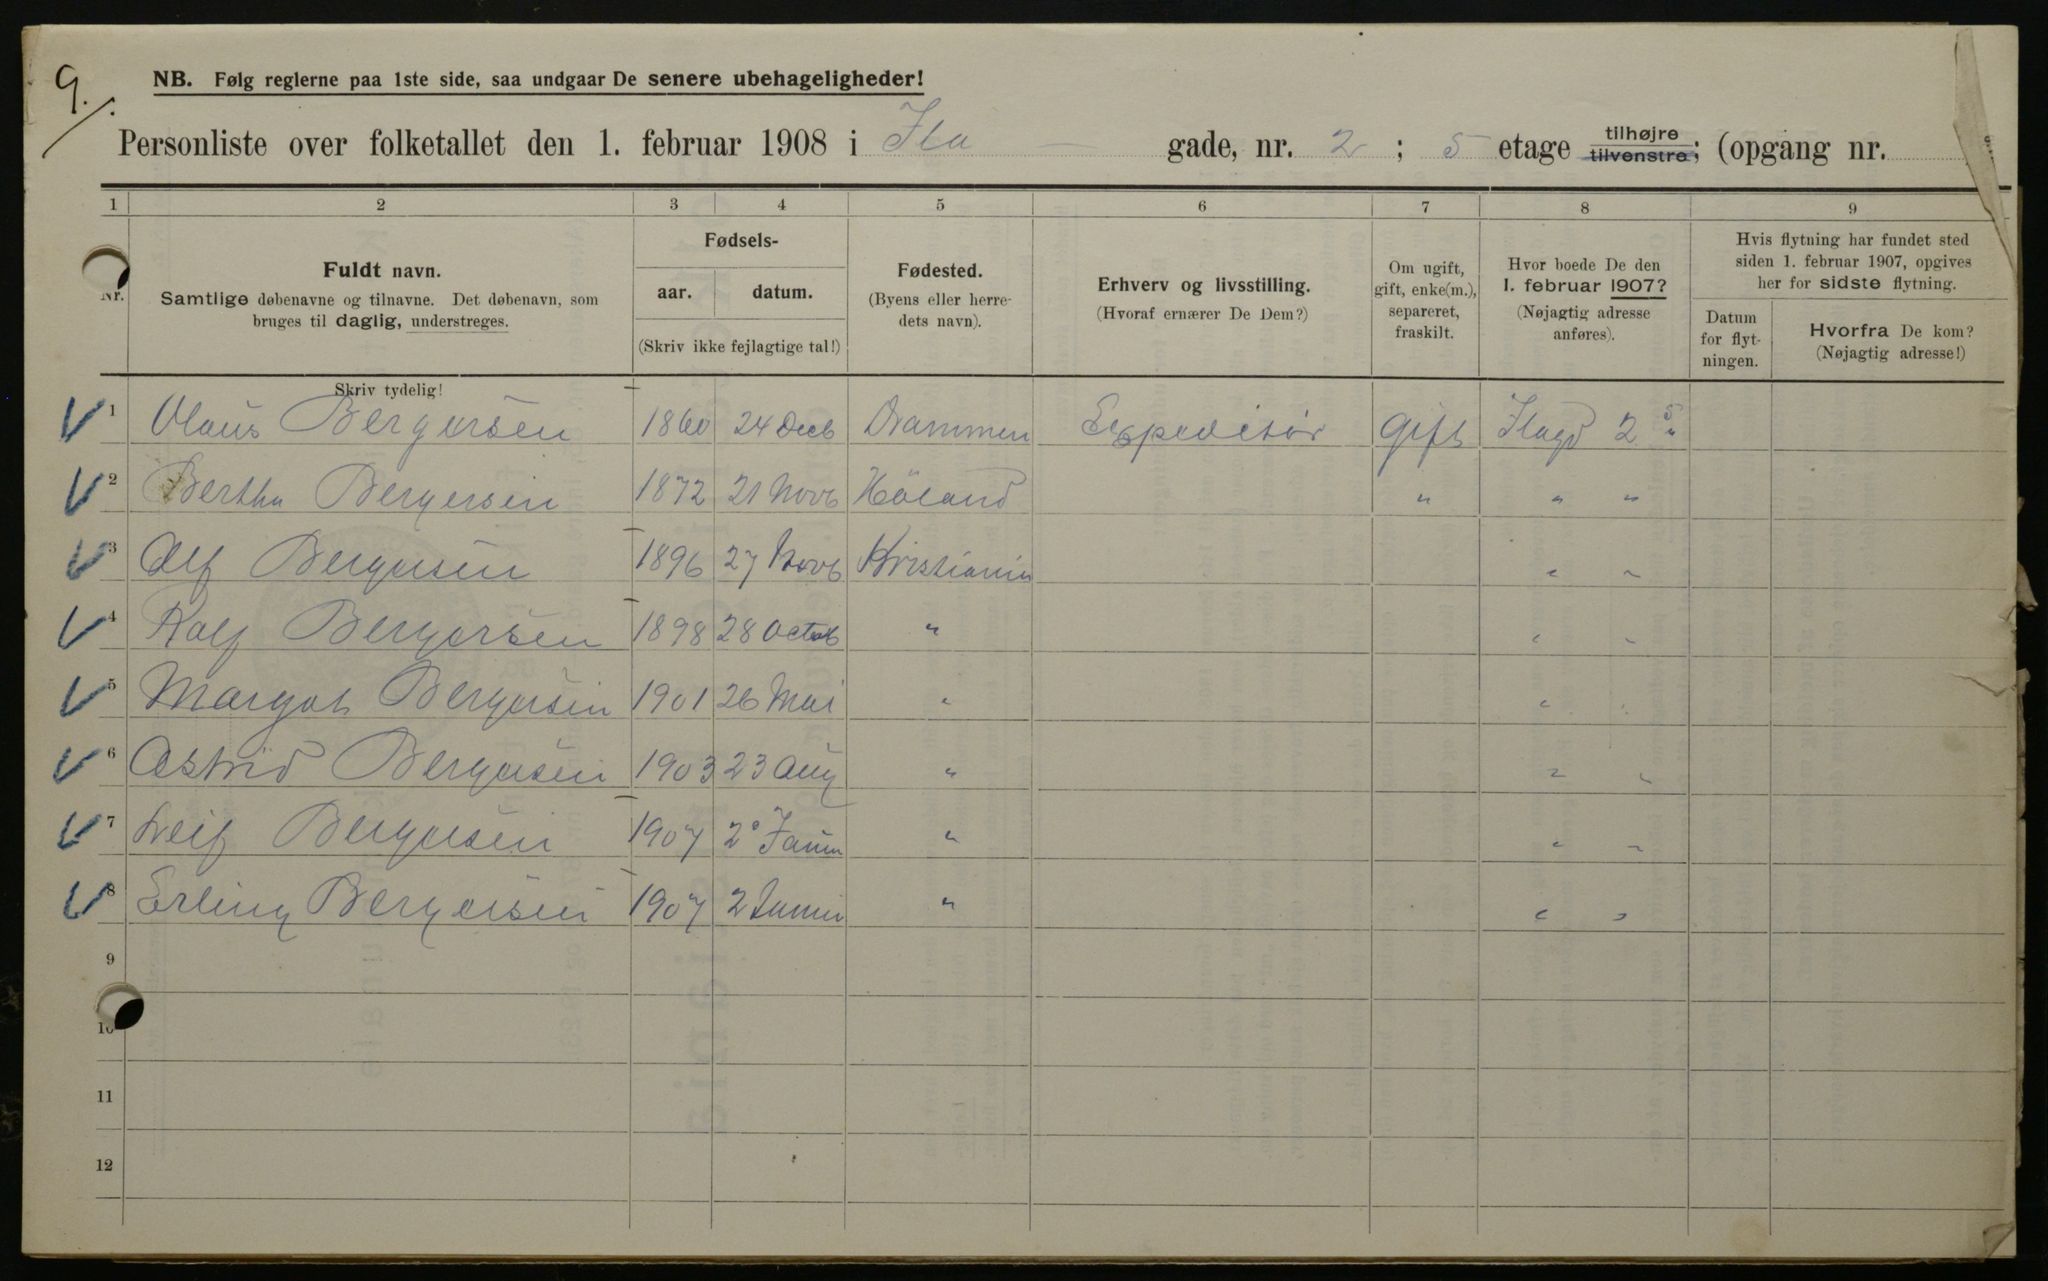 9./.
NB. Følg reglerne paa 1ste side, saa undgaar De senere ubehageligheder!
Personliste over folketallet den 1. februar 1908 i Ila — gade, nr. 2 ; 5 etage tilhøjre tilvenstre; (opgang nr.
1 2 3 4 5 6 7 8 9
Nr.
Fuldt navn.
Samtlige døbenavne og tilnavne. Det døbenavn, som
bruges til daglig, understreges.
Fødsels-
aar. datum.
(Skriv ikke fejlagtige tal!)
Fødested.
(Byens eller herre-
dets navn).
Erhverv og livsstilling.
(Hvoraf ernærer De Dem?)
Om ugift,
gift, enke(m.),
separeret,
fraskilt.
Hvor boede De den
1. februar 1907?
(Nøjagtig adresse
anføres).
Hvis flytning har fundet sted
siden 1. februar 1907, opgives
her for sidste flytning.
Datum
for flyt-
ningen.
Hvorfra De kom?
(Nøjagtig adresse!)
Skriv tydelig!
1 Olaus Bergersen 1860 24 Decb Drammen Expeditør gift Ilagd 2 5 "
2 Bertha Bergersen 1872 21 Novb Höland " " "
3 Alf Bergersen 1896 27 Novb Kristiania " "
4 Rolf Bergersen 1898 28 Octob " " "
5 Margot Bergersen 1901 26 Mai " " "
6 Astrid Bergersen 1903 23 Aug " " "
7 Leif Bergersen 1907 2 Janu " " "
8 Erling Bergersen 1907 2 Janu " " "
9
10
11
12